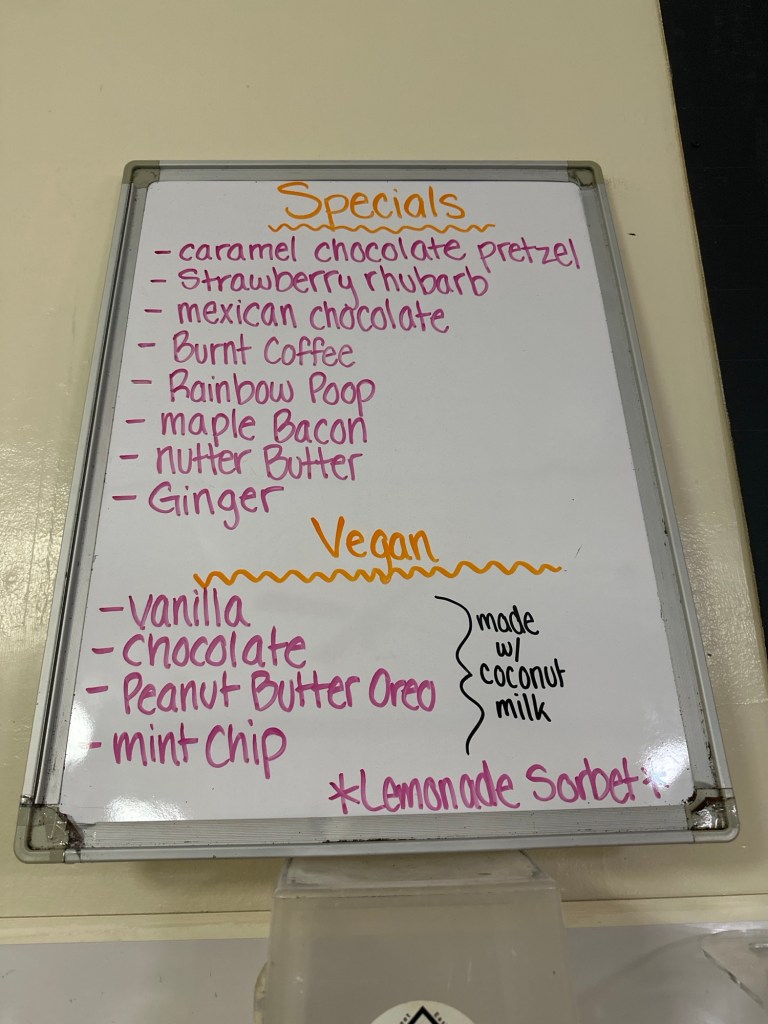 Specials
- caramel chocolate pretzel
- Strawberry rhubarb
- mexican chocolate
- Burnt Coffee
- Rainbow Poop
- maple Bacon
- nutter Butter
- Ginger
Vegan
- vanilla
- chocolate
- Peanut Butter Oreo
- mint Chip
made
w/
coconut
milk
*Lemonade Sorbet*